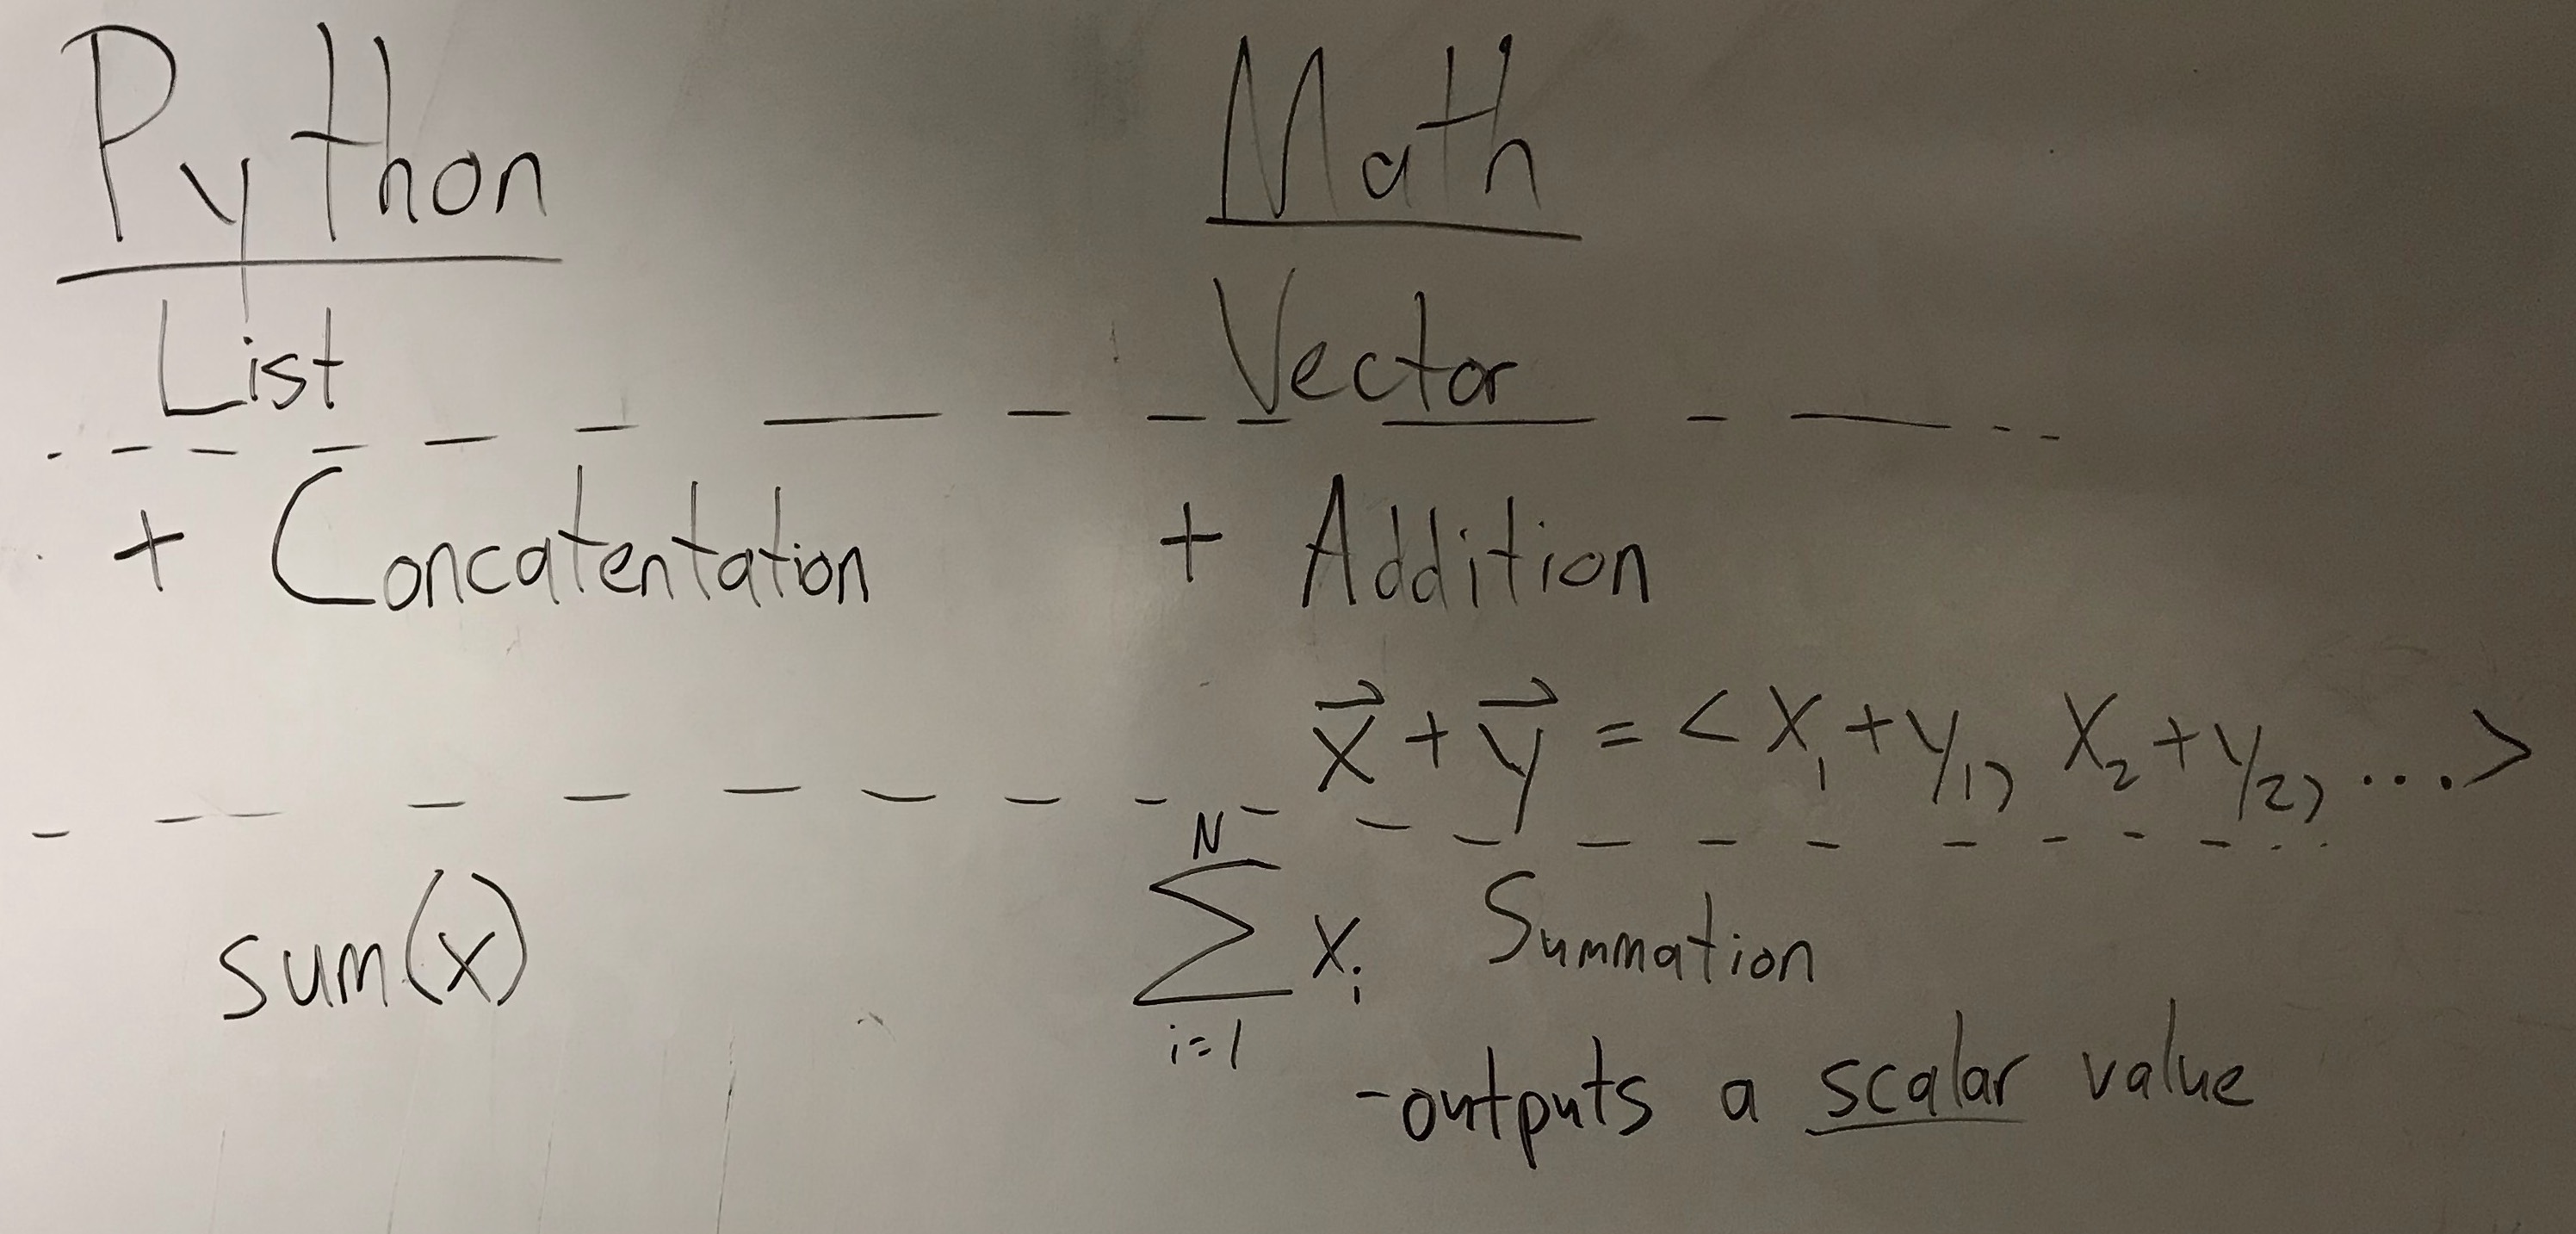 Python Math
List Vector
+ Concatentation + Addition
x⃗ + y⃗ = < x₁ + y₁, x₂ + y₂, ... >
sum(x) N ∑ i=1 xᵢ Summation
- outputs a scalar value